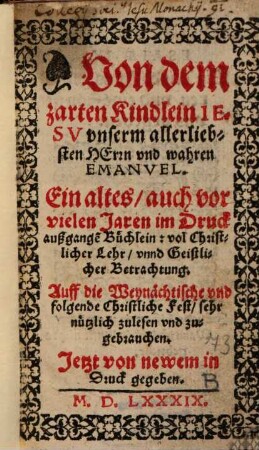 Soc. Jesu Monachij. 91
Von dem
zarten Kindlein IE-
SV vnserm allerlieb-
sten HErrn vnd wahren
EMANVEL.
Ein altes / auch vor
vielen Jaren im Druck
außgangẽ Büchlein: vol Christ-
licher Lehr / vnnd Geistli-
cher Betrachtung.
Auff die Weynächtische vnd
folgende Christliche Fest / sehr
nützlich zulesen vnd zu-
gebrauchen.
Jetzt von newem in
Druck gegeben.
B
M. D. LXXXIX.